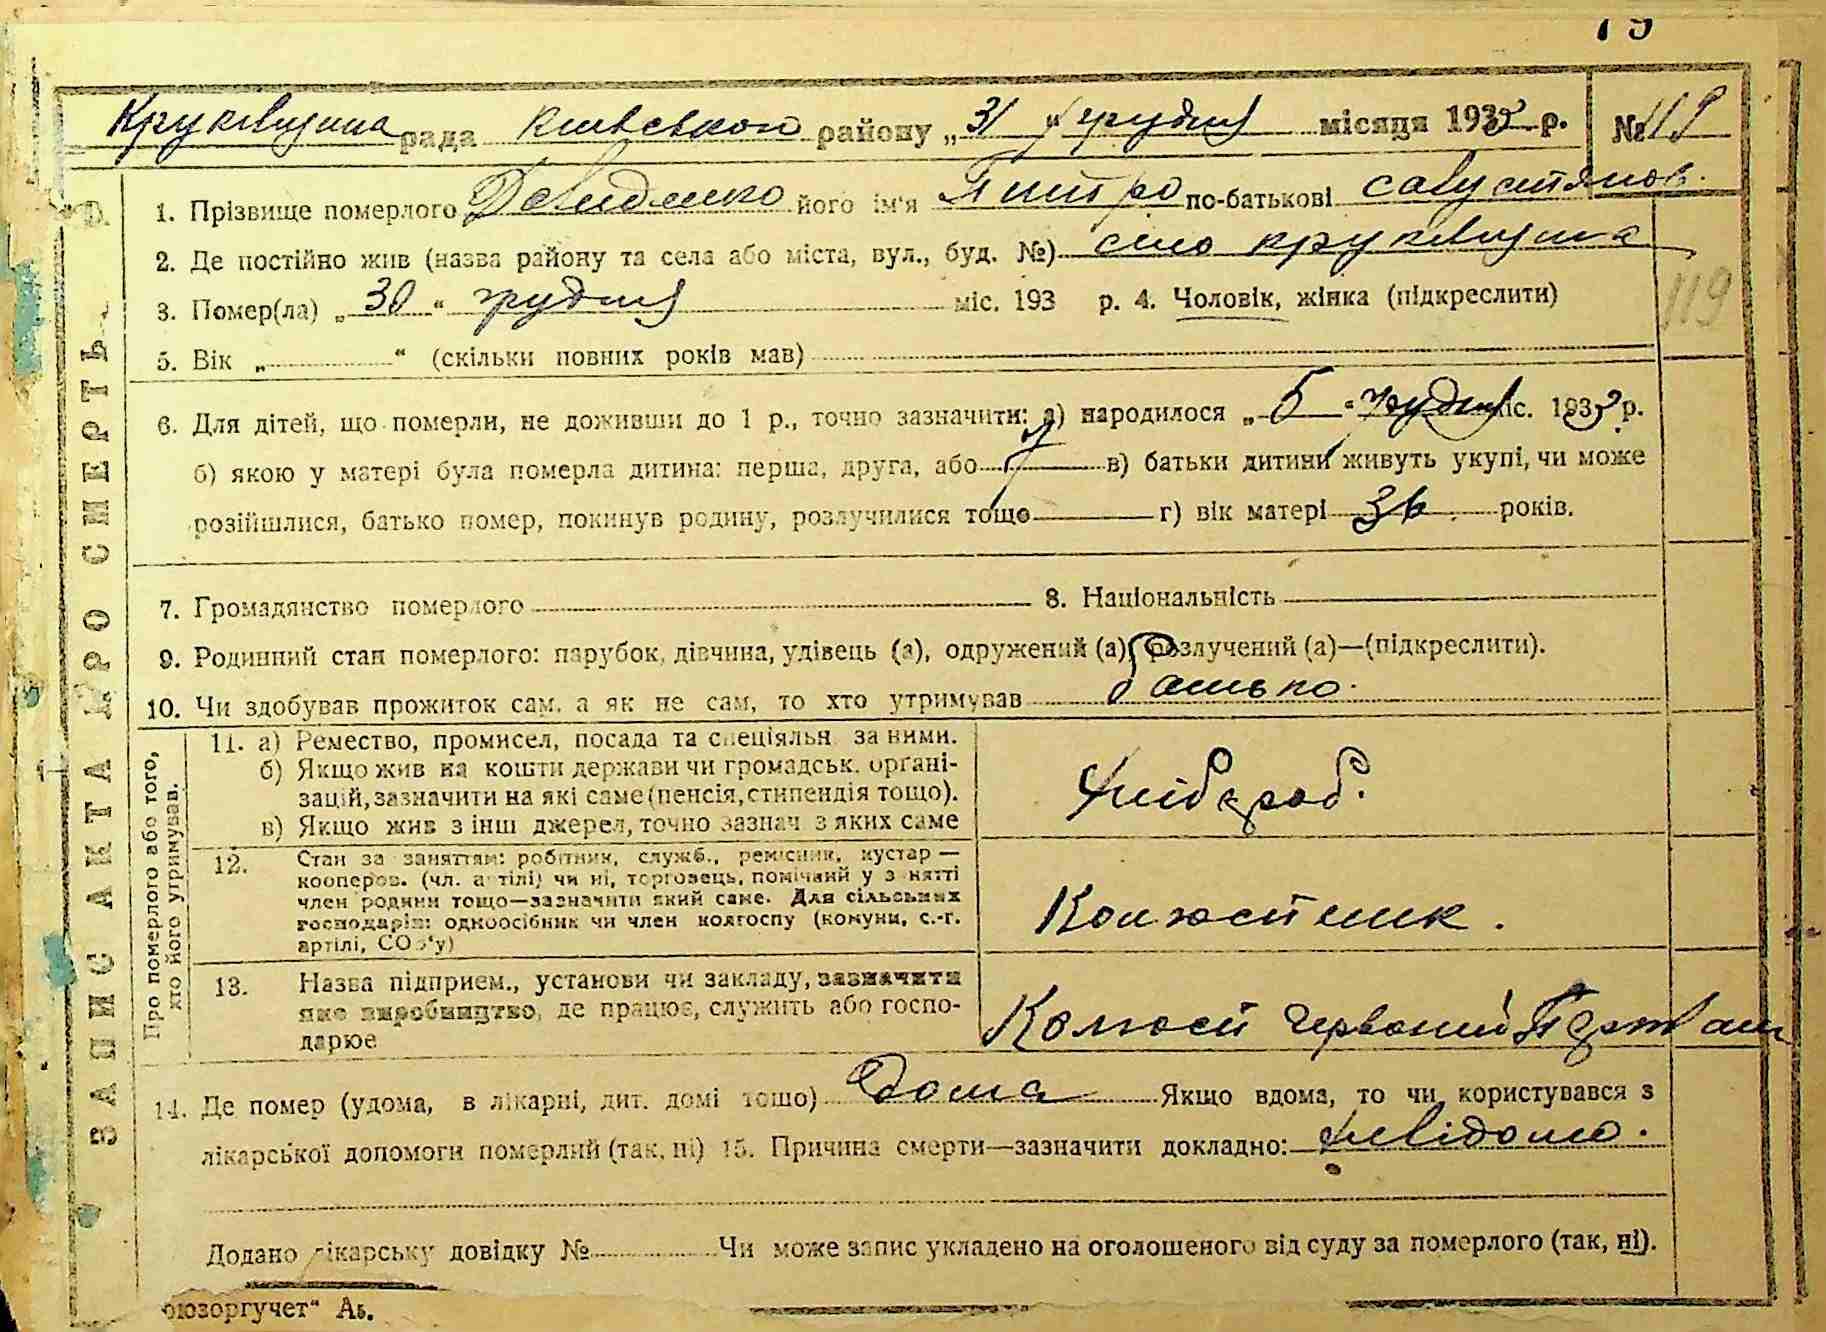 79
Круківщина рада Київського району „31" грудня місяця 1933 р. № 119
1. Прізвище померлого Давиденко його ім'я Питро по-батькові Савустянов.
2. Де постійно жив (назва району та села або міста, вул., буд. №) село Круківщина
3. Помер(ла) „30" грудня міс. 193 р. 4. Чоловік, жінка (підкреслити)
119
5. Вік „ " (скільки повних років мав)
6. Для дітей, що померли, не доживши до 1 р., точно зазначити: а) народилося „5" грудня міс. 1933 р.
б) якою у матері була померла дитина: перша, друга, або в) батьки дитини живуть укупі, чи може
розійшлися, батько помер, покинув родину, розлучилися тощо г) вік матері 36 років.
7. Громадянство померлого 8. Національність
9. Родинний стан померлого: парубок, дівчина, удівець (а), одружений (а), розлучений (а)—(підкреслити).
10. Чи здобував прожиток сам, а як не сам, то хто утримував батько.
ЗАПИС АКТА ПРО СМЕРТЬ
Про померлого або того,
хто його утримував.
11. а) Ремество, промисел, посада та спеціяльн. за ними.
б) Якщо жив на кошти держави чи громадськ. органі-
зацій, зазначити на які саме (пенсія, стипендія тощо).
в) Якщо жив з інш джерел, точно зазнач з яких саме
хлібороб.
12. Стан за заняттям: робітник, служб., ремісник, кустар —
кооперов. (чл. артілі) чи ні, торговець, помічний у занятті
член родини тощо—зазначити який саме. Для сільських
господарів: одноосібник чи член колгоспу (комуни, с.-г.
артілі, СОЗ'у)
Колгоспник.
13. Назва підприєм., установи чи закладу, зазначити
яке виробництво, де працює, служить або госпо-
дарює
Колгосп Червоний
14. Де помер (удома, в лікарні, дит. домі тощо) дома Якщо вдома, то чи користувався з
лікарської допомоги померлий (так, ні) 15. Причина смерти—зазначити докладно: невідомо.
Додано лікарську довідку № Чи може запис укладено на оголошеного від суду за померлого (так, ні).
оюзоргучет"